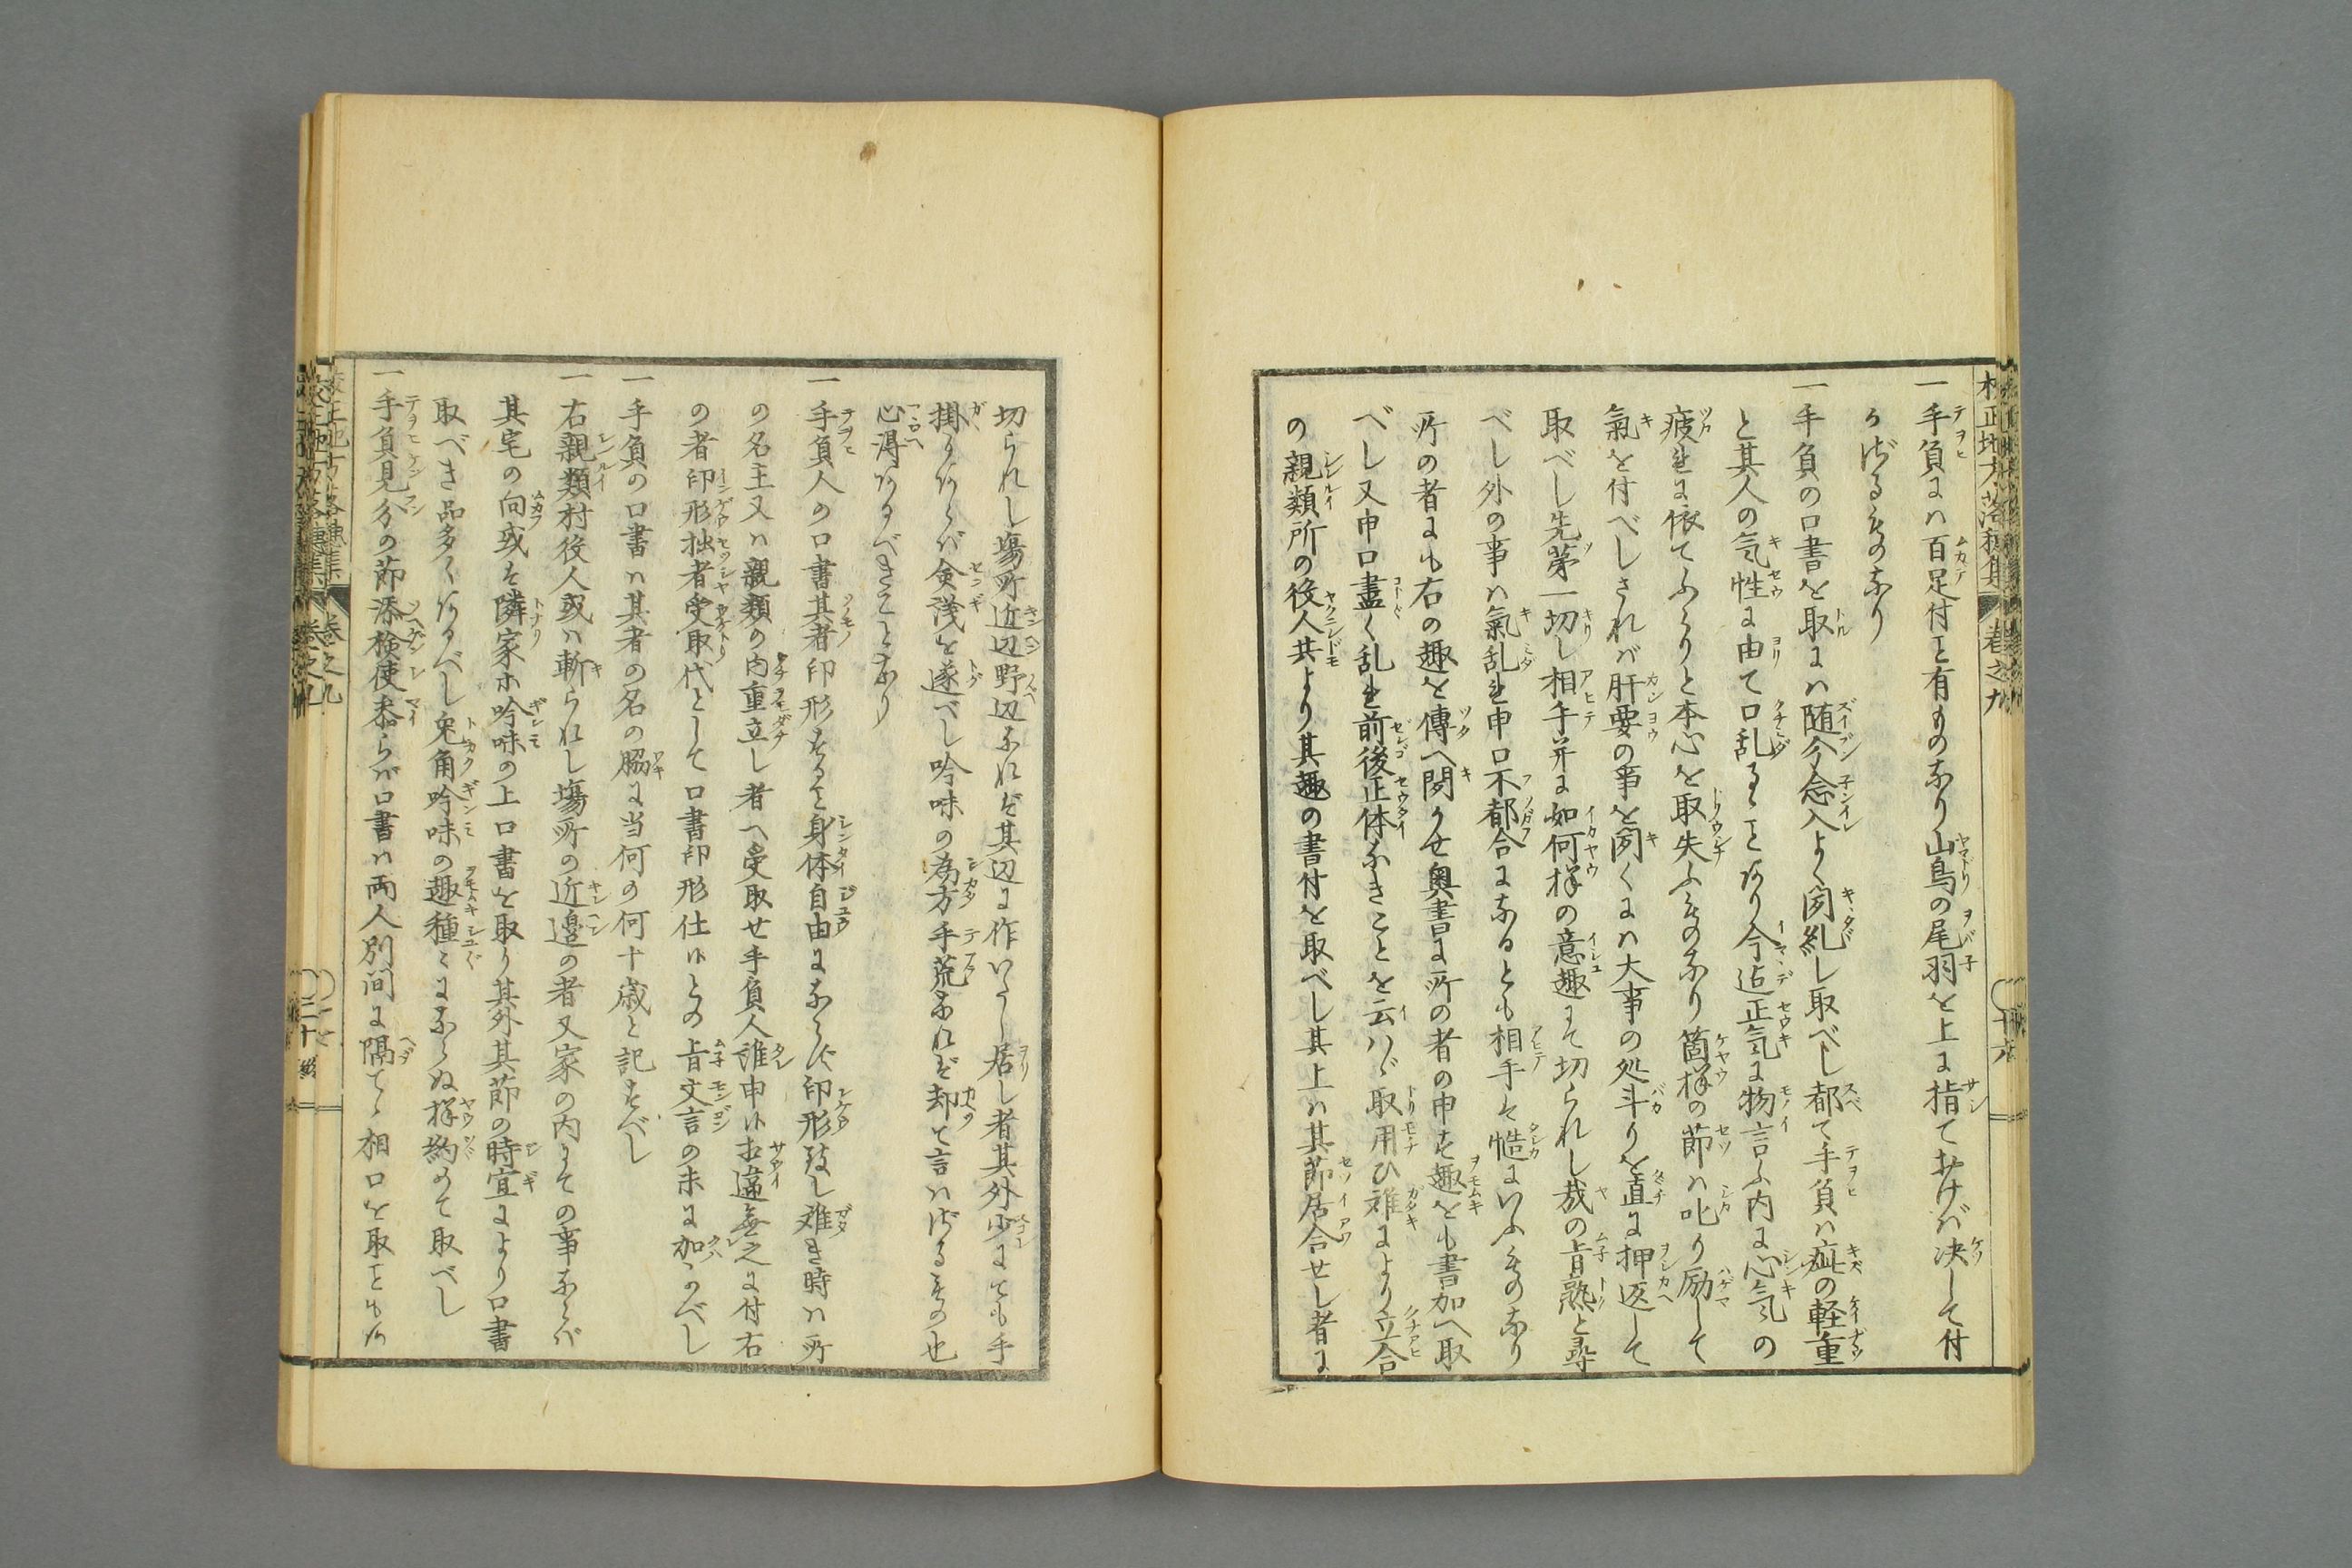 校正地方落穂集 巻之九
一手負には百足付と有ものなり山鳥の尾羽を上に指ておけば決して付
かざるものなり
一手負の口書を取には随分念入よく聞糺し取べし都て手負は疵の軽重
と其人の気性に由て口乱ることあり今迠正気に物言ふ内に心気の
疲れに依てふらりと本心を取失ふものなり箇様の節は叱り励して
氣を付べしされば肝要の事を聞くには大事の処斗りを直に押返して
取べし先第一切し相手并に如何様の意趣にて切られし哉の旨熟と尋
べし外の事は氣乱れ申口不都合になるとも相手を慥にいふものなり
所の者にも右の趣を傳へ聞かせ奥書に所の者の申す趣をも書加へ取
べし又申口盡く乱れ前後正体なきことを云はゞ取用ひ難により立合
の親類所の役人共より其趣の書付を取べし其上は其節居合せし者に
切られし場所近辺野辺なれば其辺に作いたし居し者其外少にても手
掛りあらば僉議を遂べし吟味の為方手荒なれば却て言はざるもの也
心得あるべきことなり
一手負人の口書其者印形すると身体自由にならず印形致し難き時は所
の名主又は親類の内重立し者へ受取せ手負人誰申候相違無之に付右
の者印形拙者受取代として口書印形仕候との旨文言の末に加ふべし
一手負の口書は其者の名の脇に当何の何十歳と記すべし
一右親類村役人或は斬られし場所の近邉の者又家の内にての事ならば
其宅の向或は隣家ホ吟味の上口書を取り其外其節の時宜により口書
取べき品多くあるべし兎角吟味の趣種々にならぬ様約めて取べし
一手負見分の節添検使参らば口書は両人別間に隔てゝ相口を取ともあ
校正地方落穂集 巻之九